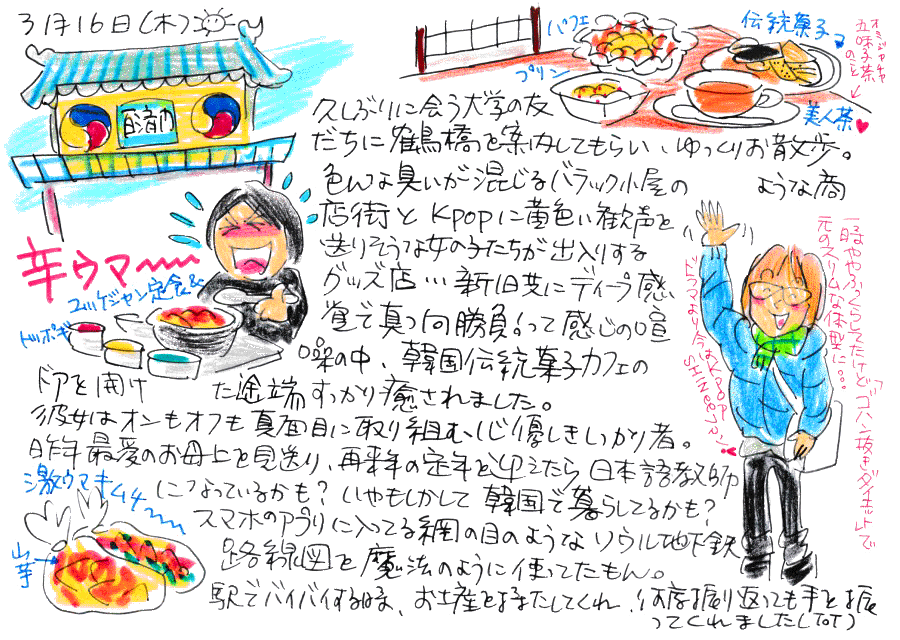 3月16日(木)
百済門
パフェ
プリン
伝統菓子
オミジャチャ
五味子茶
のこと
美人茶
久しぶりに会う大学の友
だちに鶴橋を案内してもらい、ゆっくりお散歩。
色んな臭いが混じるバラック小屋のような商
店街とKpopに黄色い歓声を
送りそうな女の子たちが出入りする
グッズ店…新旧共にディープ感
覚で真っ向勝負!って感じの喧
噪の中、韓国伝統菓子カフェの
ドアを開けた途端すっかり癒されました。
彼女はオンもオフも真面目に取り組む心優しきしっかり者。
昨年最愛のお母上を見送り、再来年の定年を迎えたら日本語教師
になっているかも?いやもしかして韓国で暮らしてるかも?
スマホのアプリに入ってる網の目のようなソウル地下鉄
路線図を魔法のように使ってたもん。
駅でバイバイする時、お土産を持たしてくれ、何度振り返っても手を振
ってくれました(ToT)
辛ウマ〜〜
ユッケジャン定食&
トッポギ
一時ややふっくらしてたけど「ゴハン抜きダイエット」で
元のスリムな体型に…
ドラマより今はKpop
SHINeeファン!
激ウマキムチ〜
山芋